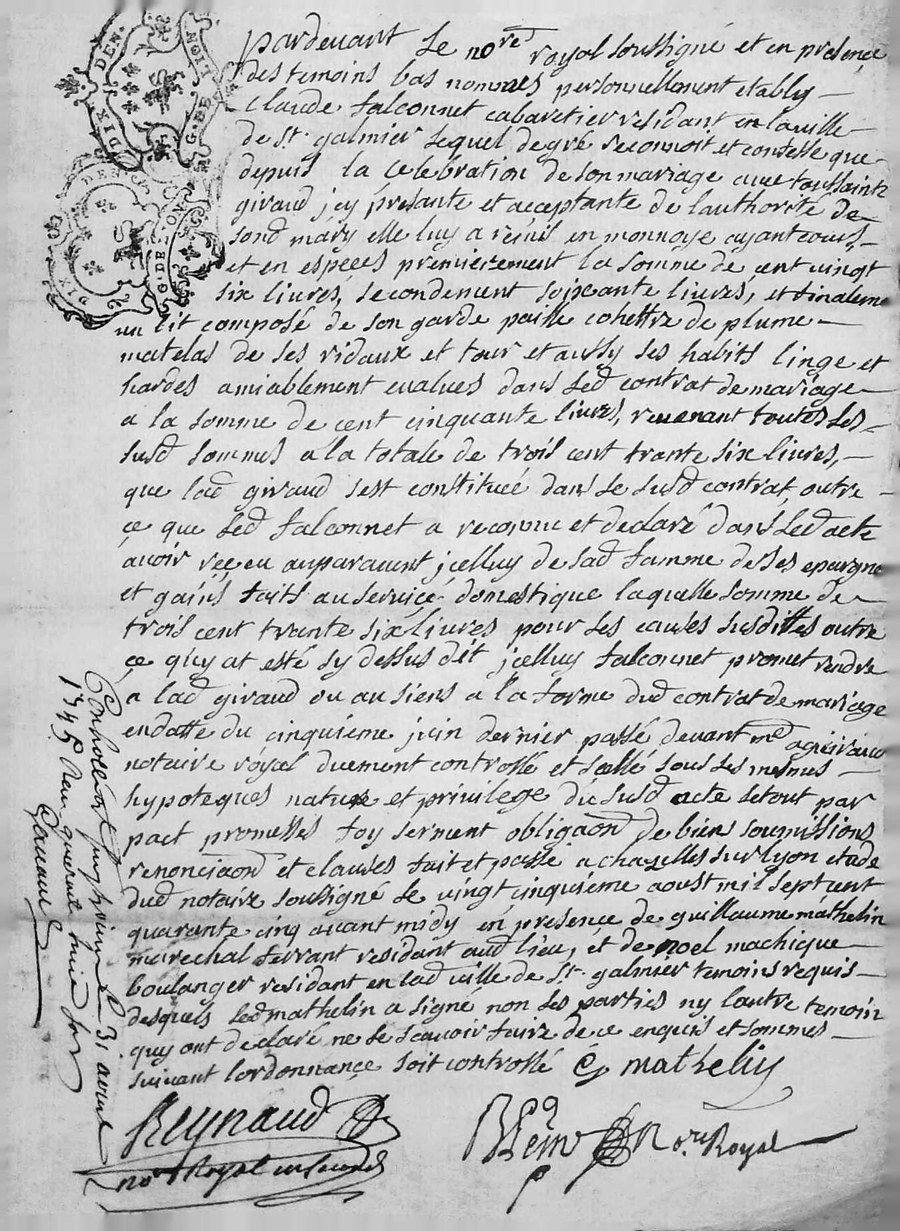 DIX DEN.
G. DE
DIX DEN
G. DE LYON
pardevant Le no.re royal soussigné et en presence
des temoins bas nommés personnellement etably
Claude falconnet cabaretier residant en la ville
de St. galmier Lequel de gré reconnoit et confesse que
depuis la celebration de son mariage avec toussainte
giraud jcy presante et acceptante de lauthorité de
sond mary elle luy a remis en monnoye ayant cours
et en especes premierement la somme de cent vingt
six livres, secondement soixcante livres, et finaleme
un lit composé de son garde paille cohettre de plume
matelas de ses ridaux et tour et aussy ses habits linge et
hardes amiablement evalués dans Led contrat de mariage
a la somme de cent cinquante livres, revenant toutes Les
susd sommes a la totale de trois cent trante six livres,
que lad giraud sest constituée dans Le susd contrat, outre
ce que Led falconnet a reconnu et declaré dans Led acte
avoir reçeu auparavent jcelluy de sad famme de ses epargne
et gains faits au service domestique laquelle somme de
trois cent trante six livres pour Les causes susdittes outre
ce quy at esté sy dessus dit jcelluy falconnet promet rendre
a lad giraud ou au siens a la forme dud contrat de mariage
en datte du cinquieme juin dernier passé devant me
notaire royal duement controllé et scellé sous Les mesmes
hypoteques nature et privilege du susd acte Le tout par
pact promesses foy serment obligaon de bien soumissions
renonciaon et clauses fait et passé a chazelles sur lyon etude
dud notaire soussigné Le vingt cinquieme aoust mil sept cent
quarante cinq avant midy en presence de guillaume mathelin
marechal ferrant residant aud lieu, et de noel machique
boulanger residant en lad ville de St. galmier temoins requis
desquels Led mathelin a signé non Les parties ny lautre temoin
quy ont declaré ne Le scavoir faire de ce enquis et sommés
suivant lordonnance soit controllé G mathelin
Reynaud
nore Royal
nore Royal
Le 31 avril
1745